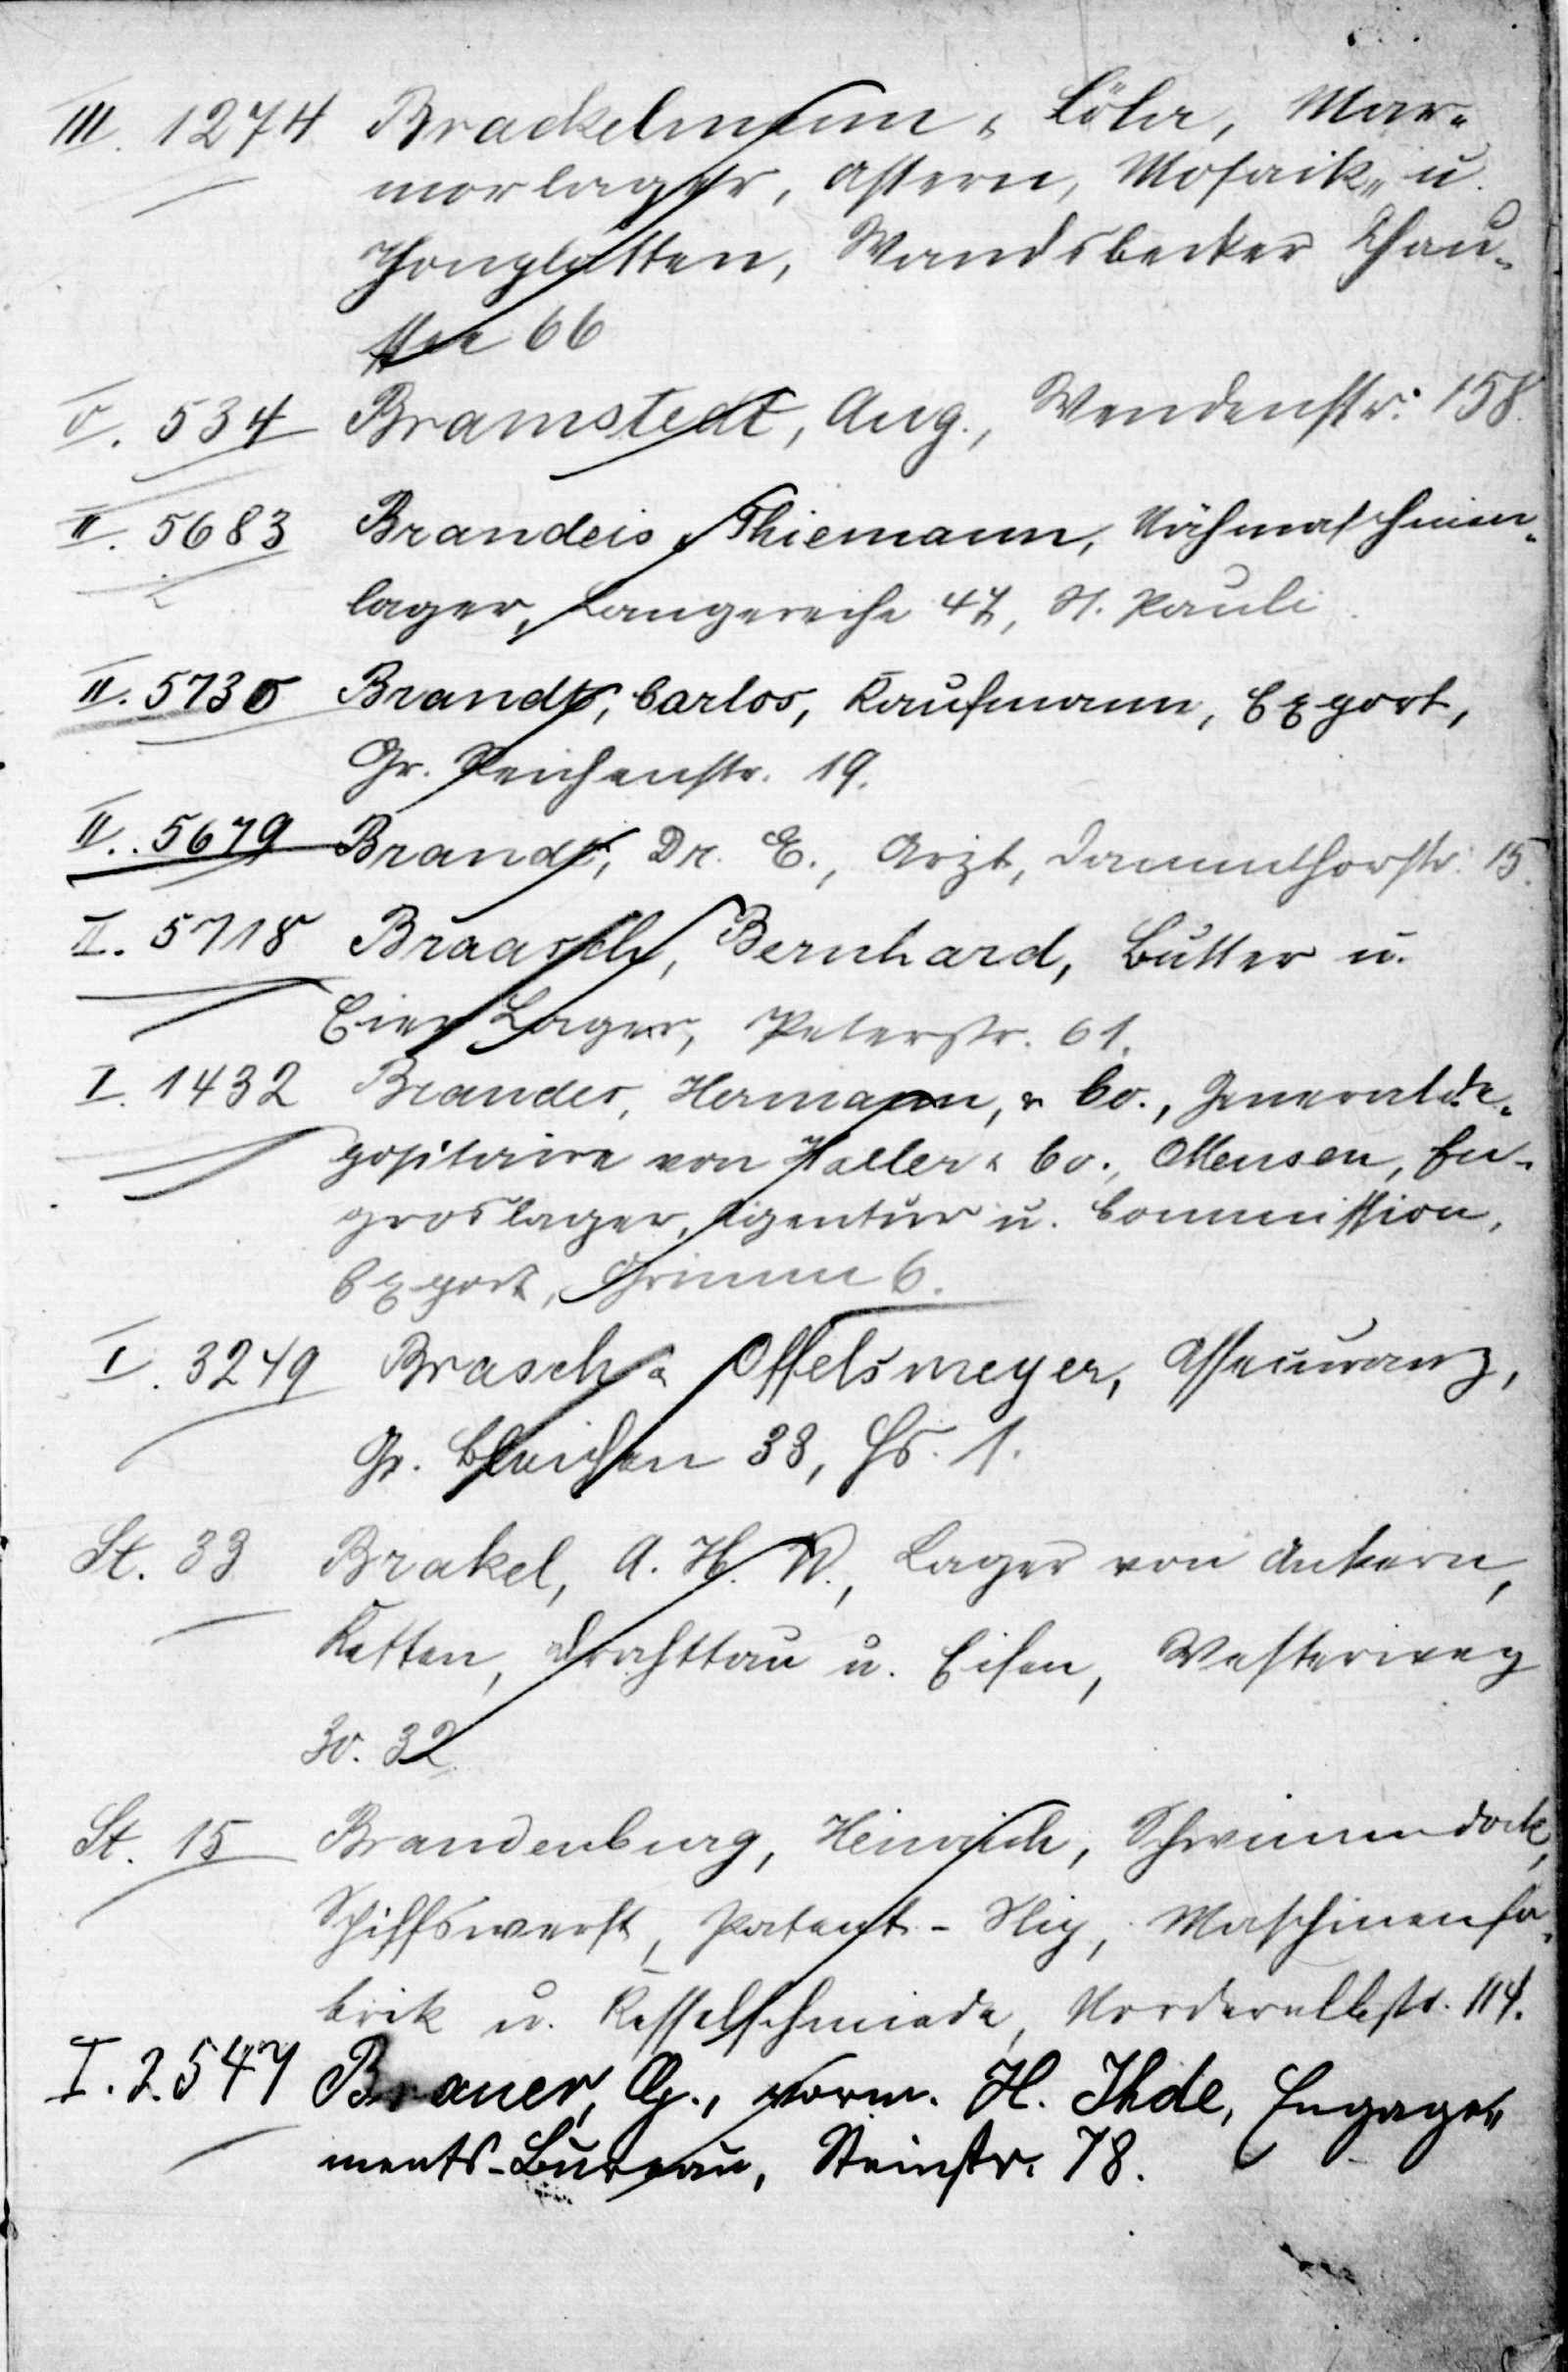 III. 1274 Brackelmann & Löhr, Mar-
morlager, Astern, Mosaik- u.
Thonplatten, Wandsbecker Chau-
ssee 66
V. 534 Bramstedt, Aug., Wendenstr. 158.
II. 5683 Brandeis & Thiemann, Nähmaschinen-
lager, Langereihe 47, St. Pauli.
II. 5730 Brandt, Carlos, Kaufmann, Export,
Gr. Reichenstr. 19.
II. 5679 Brandt, Dr. E., Arzt, Dammthorstr. 15.
II. 5718 Braasch, Bernhard, Butter u.
Eier Lager, Peterstr. 61.
I. 1432 Brandes, Hermann, & Co., Generalde-
positaire von Haller & Co., Ottensen, En-
groslager, Agentur u. Commission,
Export, Grimm 6.
I. 3249 Brasch & Offelsmeyer, Assecuranz,
Gr. Bleichen 33, Hs. 1.
St. 33 Brakel, A. H. W., Lager von Ankern,
Ketten, Drahttau u. Eisen, Westerweg
30. 32.
St. 15 Brandenburg, Heinrich, Schwimmdock,
Schiffswerft, Patent-Slip, Maschinenfa-
brik u. Kesselschmiede, Norderelbstr. 114.
I. 2547 Brauer, G., vorm. H. Ihde, Engage-
ments-Bureau, Steinstr. 78.